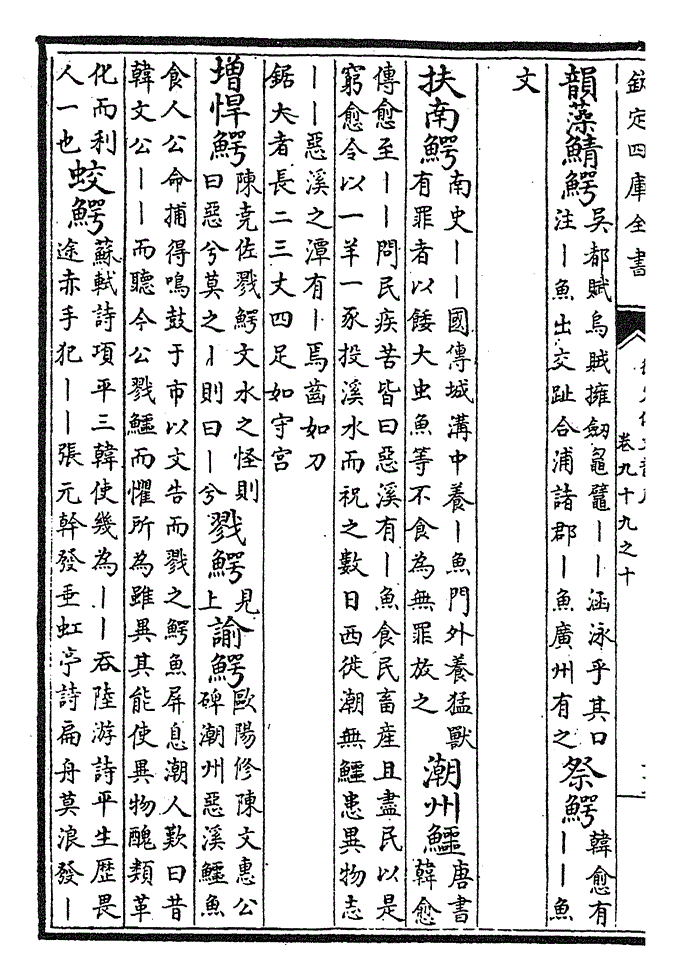 欽定四庫全書
卷九十九之十
韻藻鯖鰐
吳都賦烏賊擁劍𪓟鼊丨丨涵泳乎其口
注丨魚出交趾合浦諸郡丨魚廣州有之
祭鰐
韓愈有
丨丨魚
文
扶南鰐
南史丨丨國傳城溝中養丨魚門外養猛獸
有罪者以餧大虫魚等不食為無罪放之
潮州鱷
唐書
韓愈
傳愈至丨丨問民疾苦皆曰惡溪有丨魚食民畜産且盡民以是
窮愈令以一羊一豕投溪水而祝之數日西徙潮無鱷患異物志
丨丨惡溪之潭有丨焉齒如刀
鋸大者長二三丈四足如守宮
増悍鰐
陳堯佐戮鰐文水之怪則
曰惡兮莫之丨則曰丨兮
戮鰐
見
上
諭鰐
歐陽修陳文惠公
碑潮州惡溪鱷魚
食人公命捕得鳴鼓于市以文告而戮之鰐魚屏息潮人歎曰昔
韓文公丨丨而聽今公戮鱷而懼所為雖異其能使異物醜類革
化而利
人一也
蛟鰐
蘇軾詩項平三韓使幾為丨丨吞陸游詩平生歴畏
途赤手犯丨丨張元幹發垂虹亭詩扁舟莫浪發丨